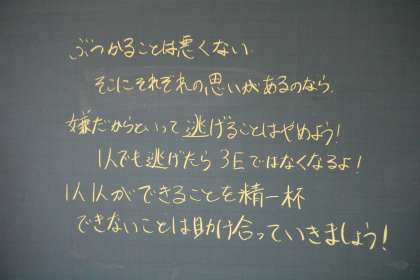 ぶつかることは悪くない。
そこにそれぞれの思いがあるのなら。
嫌だからといって逃げることはやめよう!
1人でも逃げたら3Eではなくなるよ!
1人1人ができることを精一杯
できないことは助け合っていきましょう!